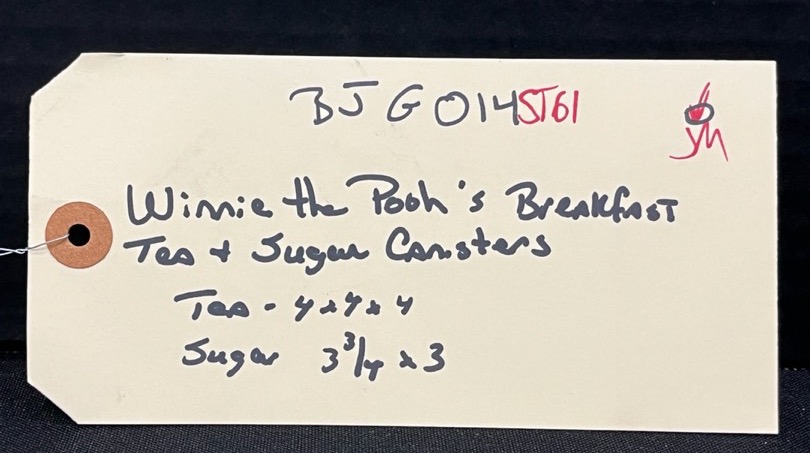 BJG014ST61
YM
Winnie the Pooh's Breakfast
Tea + Sugar Canisters
Tea - 4 x 4 x 4
Sugar 3 3/4 x 3